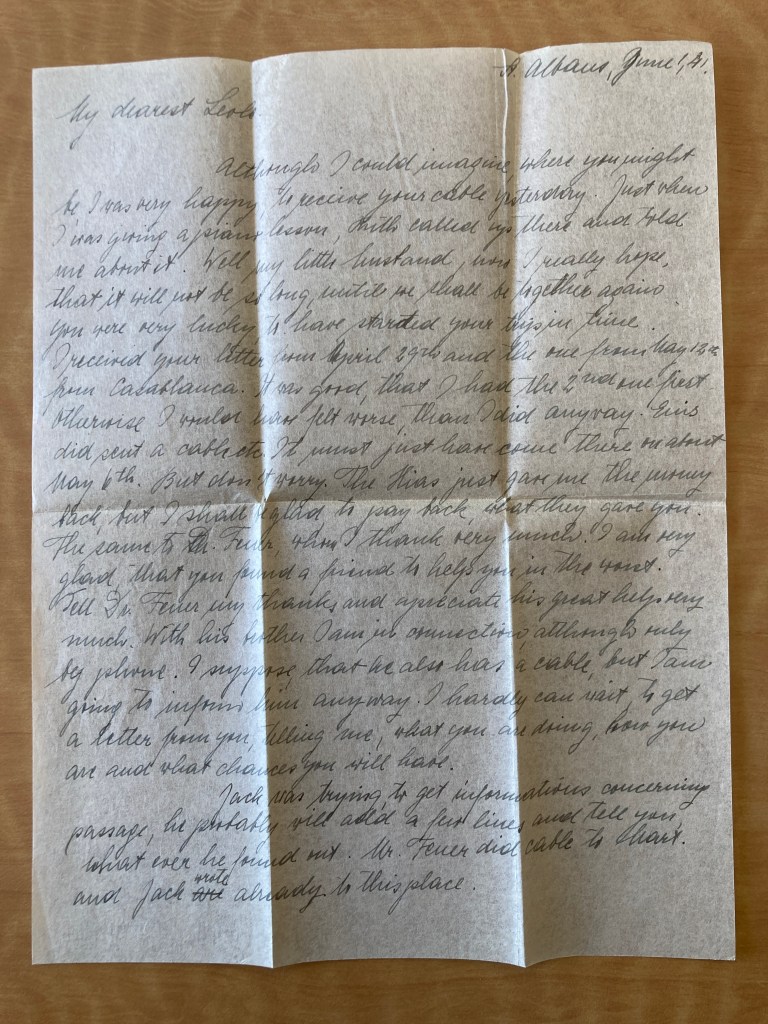 St. Albans, June 1, 41.
My dearest
Although I could imagine, where you might
be I was very happy to receive your cable yesterday. Just when
I was giving a piano lesson, Ruth called up there and told
me about it. Well my little husband, now I really hope,
that it will not be so long, until we shall be together again.
You were very lucky to have started your trip in time.
I received your letter from April 29th and the one from May 12th
from Casablanca. It was good, that I had the 2nd one first
otherwise I would have felt worse, than I did anyway.
did sent a cable etc. It must just have come there on about
May 6th. But don't worry. The Hias just gave me the money
back, but I shall glad to pay back, what they gave you.
The same to Dr. Feuer, whom I thank very much. I am very
glad, that you found a friend to help you in the worst.
Tell Dr. Feuer my thanks and apreciate his great help very
much. With his brother I am in connection, although only
by phone. I suppose, that he also has a cable, but I am
going to inform him anyway. I hardly can wait to get
a letter from you, telling me, what you are doing, how you
are and what chances you will have.
Jack was trying to get informations concerning
passage, he probably will add a few lines and tell you,
what ever he found out. Mr. Feuer did cable to
and Jack wrote already to this place.